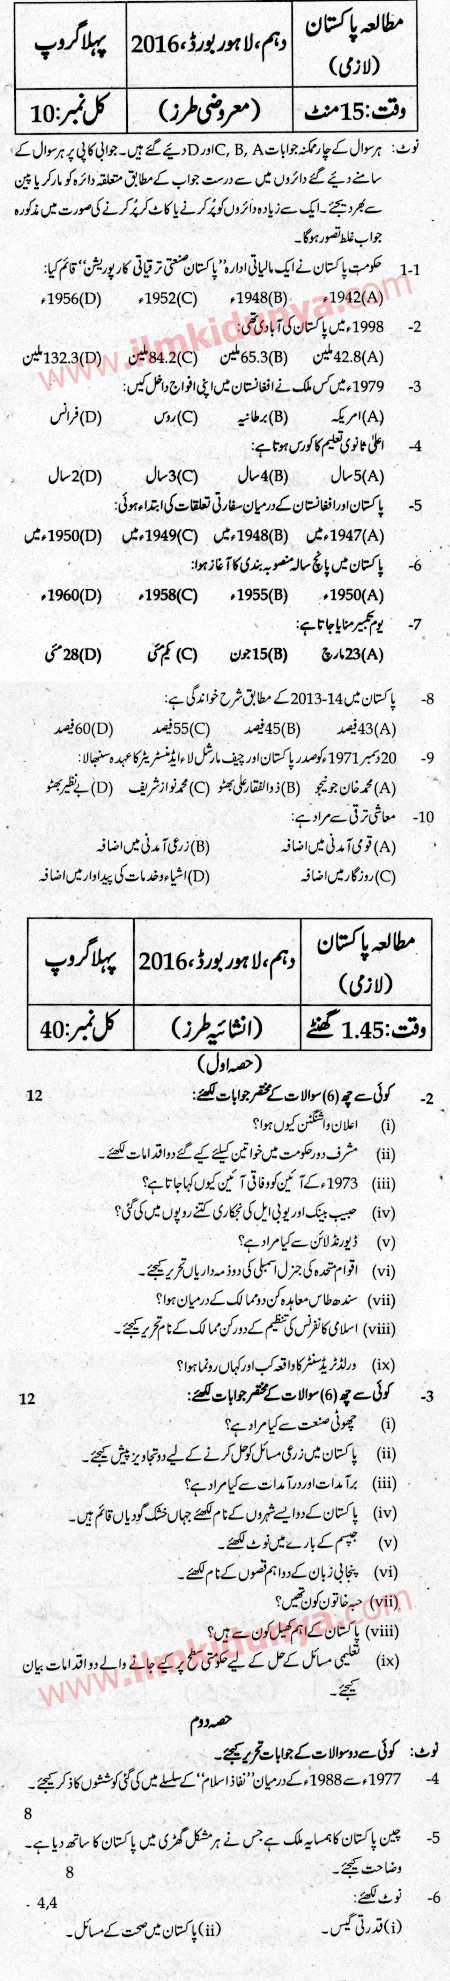 مطالعہ پاکستان (لازمی)
دہم، لاہور بورڈ، 2016
پہلا گروپ
وقت: 15 منٹ
(معروضی طرز)
کل نمبر: 10
نوٹ: ہر سوال کے چار ممکنہ جوابات C, B, A اور D دیئے گئے ہیں۔ جوابی کاپی پر ہر سوال کے
سامنے دیئے گئے دائروں میں سے درست جواب کے مطابق متعلقہ دائرہ کو مارکر یا پین
سے بھر دیجئے۔ ایک سے زیادہ دائروں کو پُر کرنے یا کاٹ کر پُر کرنے کی صورت میں مذکورہ
جواب غلط تصور ہوگا۔
1-1 حکومت پاکستان نے ایک مالیاتی ادارہ "پاکستان صنعتی ترقیاتی کارپوریشن" قائم کیا:
(A) 1942ء (B) 1948ء (C) 1952ء (D) 1956ء
2- 1998ء میں پاکستان کی آبادی تھی:
(A) 42.8 ملین (B) 65.3 ملین (C) 84.2 ملین (D) 132.3 ملین
3- 1979ء میں کس ملک نے افغانستان میں اپنی افواج داخل کیں:
(A) امریکہ (B) برطانیہ (C) روس (D) فرانس
4- اعلیٰ ثانوی تعلیم کا کورس ہوتا ہے:
(A) 5 سال (B) 4 سال (C) 3 سال (D) 2 سال
5- پاکستان اور افغانستان کے درمیان سفارتی تعلقات کی ابتداء ہوئی:
(A) 1947ء میں (B) 1948ء میں (C) 1949ء میں (D) 1950ء میں
6- پاکستان میں پانچ سالہ منصوبہ بندی کا آغاز ہوا:
(A) 1950ء (B) 1955ء (C) 1958ء (D) 1960ء
7- یوم تکبیر منایا جاتا ہے:
(A) 23 مارچ (B) 15 جون (C) یکم مئی (D) 28 مئی
8- پاکستان میں 14-2013 کے مطابق شرح خواندگی ہے:
(A) 43 فیصد (B) 45 فیصد (C) 55 فیصد (D) 60 فیصد
9- 20 دسمبر 1971ء کو صدر پاکستان اور چیف مارشل لاء ایڈمنسٹریٹر کا عہدہ سنبھالا:
(A) محمد خان جونیجو (B) ذوالفقار علی بھٹو (C) محمد نواز شریف (D) بے نظیر بھٹو
10- معاشی ترقی سے مراد ہے:
(A) قومی آمدنی میں اضافہ (B) زرعی آمدنی میں اضافہ
(C) روزگار میں اضافہ (D) اشیاء و خدمات کی پیداوار میں اضافہ
مطالعہ پاکستان (لازمی)
دہم، لاہور بورڈ، 2016
پہلا گروپ
وقت: 1.45 گھنٹے
(انشائیہ طرز)
کل نمبر: 40
(حصہ اول)
2- کوئی سے چھ (6) سوالات کے مختصر جوابات لکھئے: 12
(i) اعلان واشنگٹن کیوں ہوا؟
(ii) مشرف دور حکومت میں خواتین کیلئے کیے گئے دو اقدامات لکھئے۔
(iii) 1973ء کے آئین کو وفاقی آئین کیوں کہا جاتا ہے؟
(iv) حبیب بینک اور یو بی ایل کی نجکاری کتنے روپوں میں کی گئی؟
(v) ڈیورنڈ لائن سے کیا مراد ہے؟
(vi) اقوام متحدہ کی جنرل اسمبلی کی دو ذمہ داریاں تحریر کیجئے۔
(vii) سندھ طاس معاہدہ کن دو ممالک کے درمیان ہوا؟
(viii) اسلامی کانفرنس کی تنظیم کے دو رکن ممالک کے نام تحریر کیجئے۔
(ix) ورلڈ ٹریڈ سنٹر کا واقعہ کب اور کہاں رونما ہوا؟
3- کوئی سے چھ (6) سوالات کے مختصر جوابات لکھئے: 12
(i) چھوٹی صنعت سے کیا مراد ہے؟
(ii) پاکستان میں زرعی مسائل کو حل کرنے کے لیے دو تجاویز پیش کیجئے۔
(iii) برآمدات اور درآمدات سے کیا مراد ہے؟
(iv) پاکستان کے دو ایسے شہروں کے نام لکھئے جہاں خشک گودیاں قائم ہیں۔
(v) جپسم کے بارے میں نوٹ لکھئے۔
(vi) پنجابی زبان کے دو اہم قصوں کے نام لکھئے۔
(vii) حبہ خاتون کون تھیں؟
(viii) پاکستان کے اہم کھیل کون سے ہیں؟
(ix) تعلیمی مسائل کے حل کے لیے حکومتی سطح پر کیے جانے والے دو اقدامات بیان
کیجئے۔
حصہ دوم
نوٹ: کوئی سے دو سوالات کے جوابات تحریر کیجئے۔
4- 1977ء سے 1988ء کے درمیان "نفاذ اسلام" کے سلسلے میں کی گئی کوششوں کا ذکر کیجئے۔
8
5- چین پاکستان کا ہمسایہ ملک ہے جس نے ہر مشکل گھڑی میں پاکستان کا ساتھ دیا ہے۔
وضاحت کیجئے۔ 8
6- نوٹ لکھئے: 4,4
(i) قدرتی گیس۔ (ii) پاکستان میں صحت کے مسائل۔
www.ilmkidunya.com
www.ilmkidunya.com